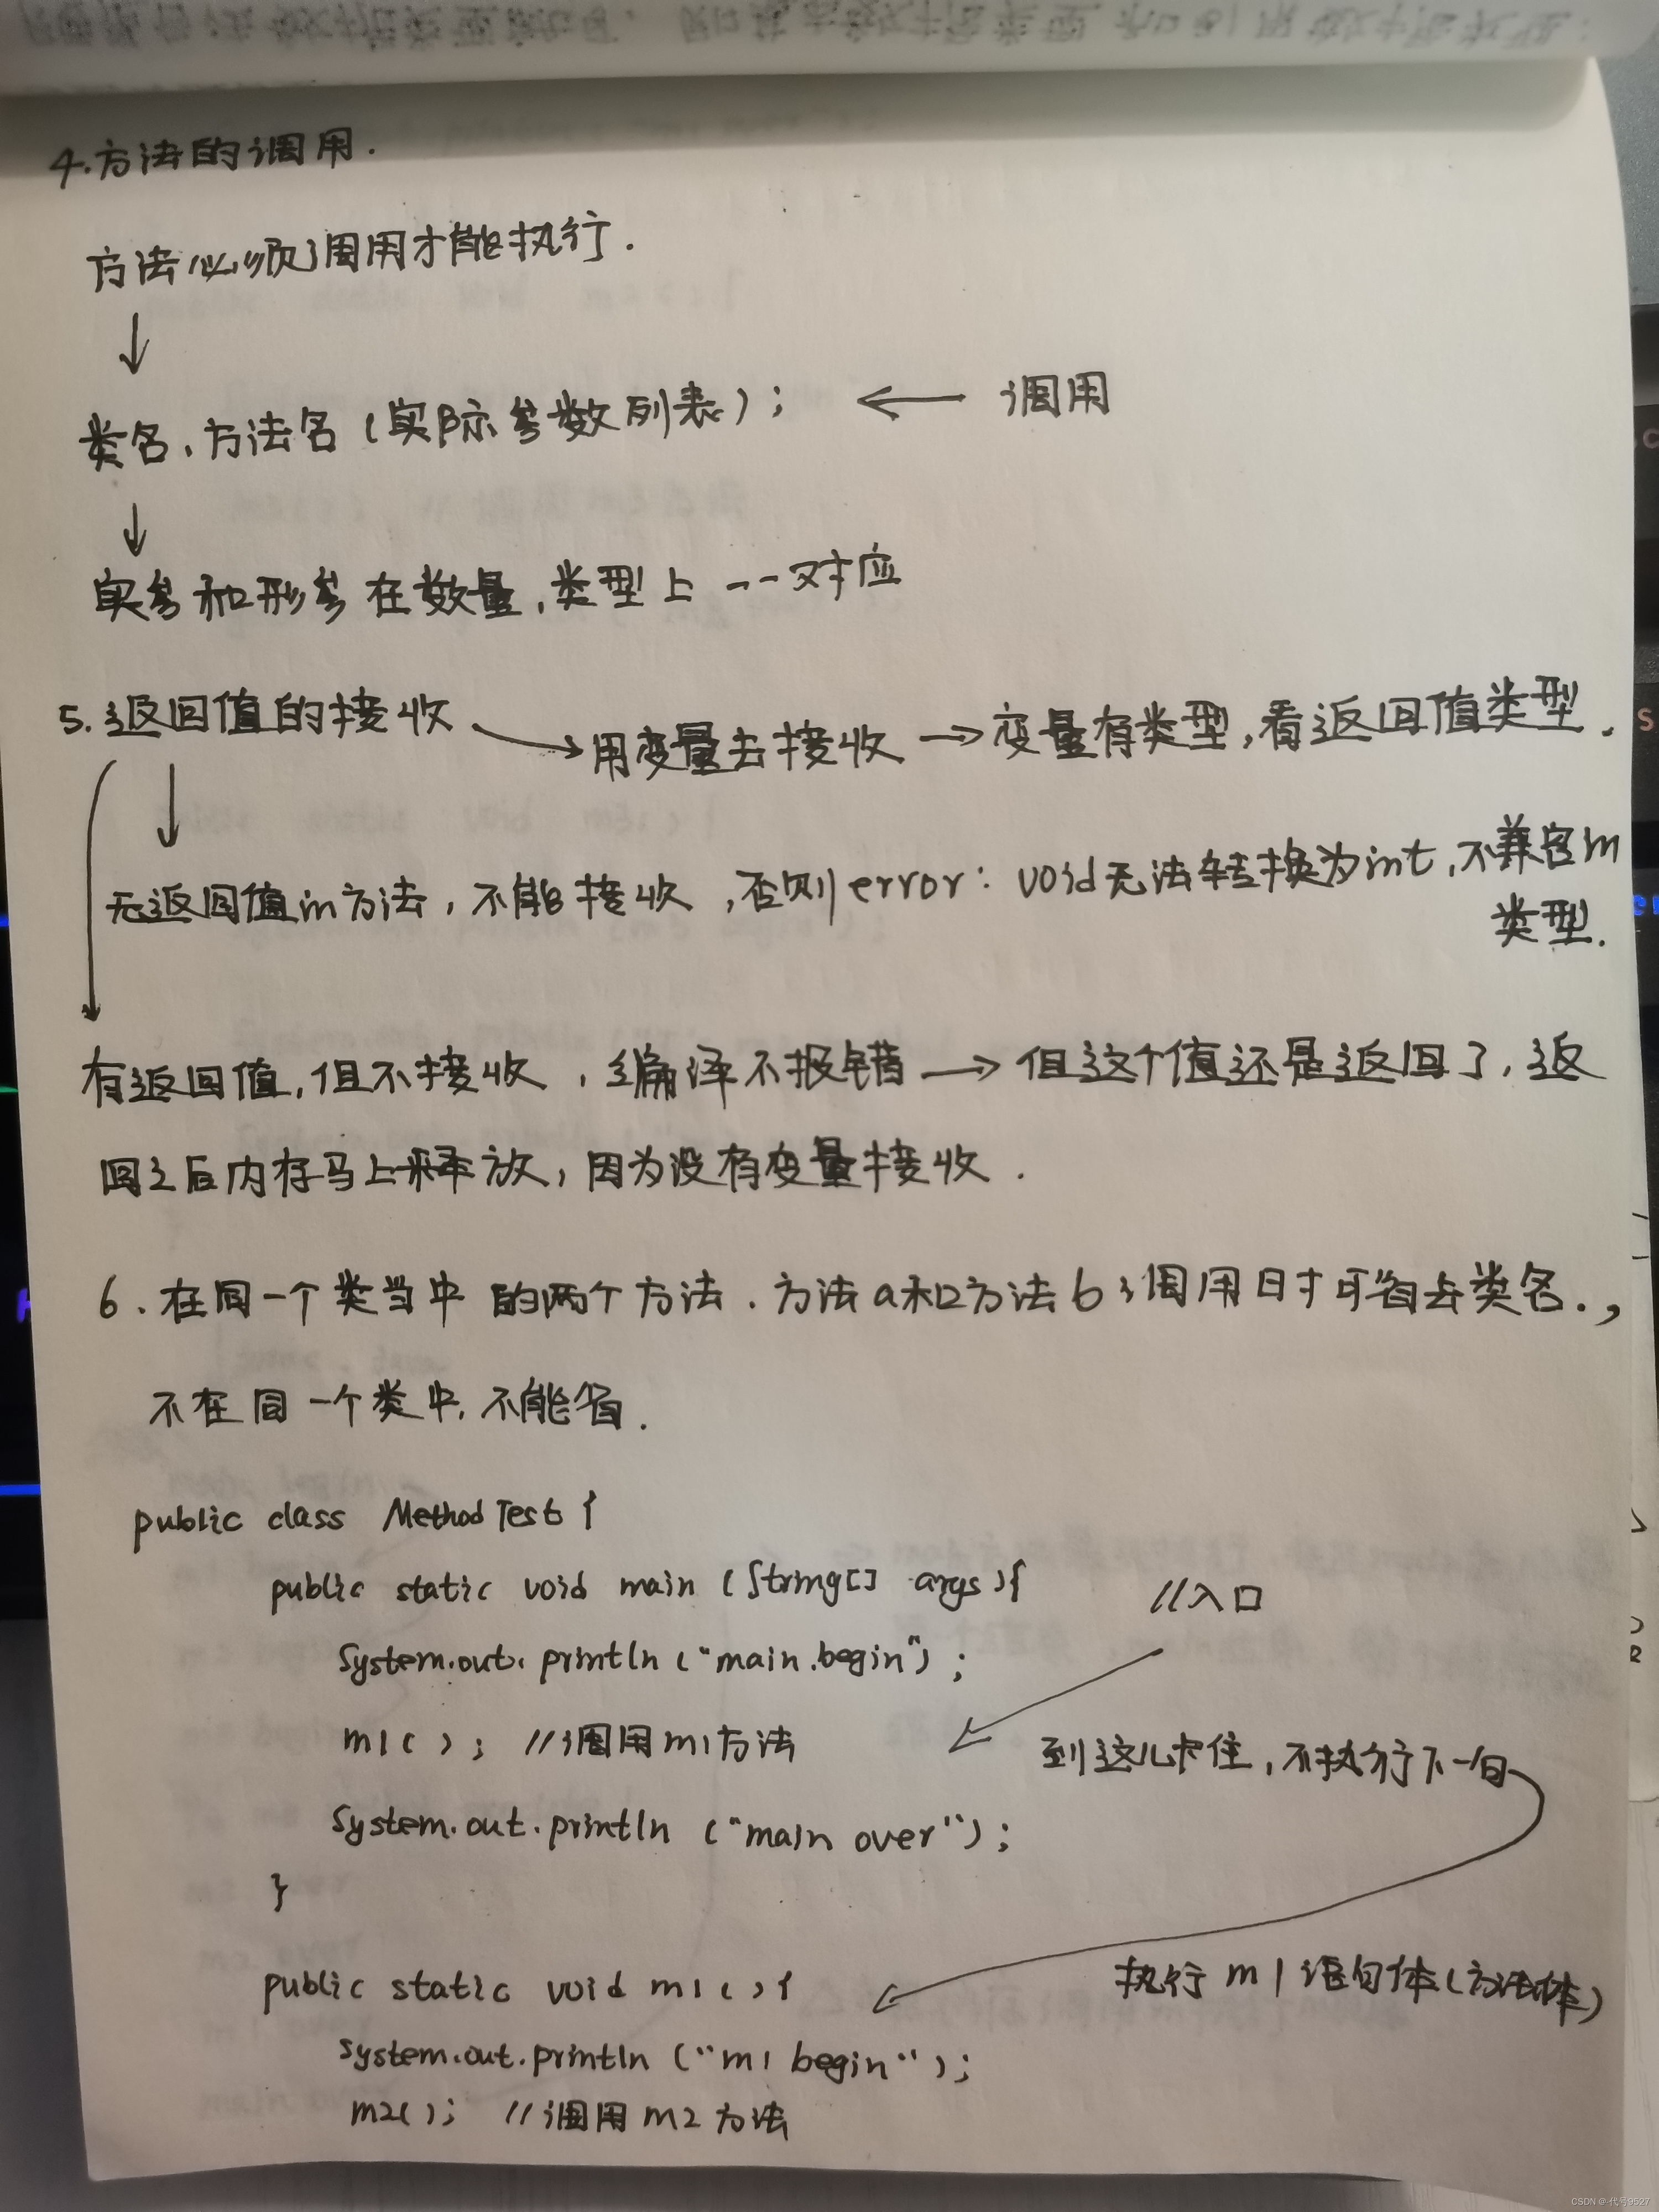 4.方法的调用.
方法必须调用才能执行.
类名.方法名(实际参数列表); ← 调用
实参和形参在数量,类型上一一对应
5.返回值的接收 → 用变量去接收 → 变量有类型,看返回值类型.
无返回值m方法,不能接收,否则error: void无法转换为int,不兼容m
类型.
有返回值,但不接收,编译不报错 → 但这个值还是返回了,返
回之后内存马上释放,因为没有变量接收.
6.在同一个类当中的两个方法.方法a和方法b调用时可省去类名.,
不在同一个类中,不能省.
public class MethodTest {
public static void main (String[] args){ //入口
System.out.println ("main.begin");
m1(); //调用m1方法 到这儿卡住,不执行下一句
System.out.println ("main over");
}
public static void m1(){ 执行m1语句体(方法体)
System.out.println ("m1 begin");
m2(); //调用m2方法
CSDN @代号9527